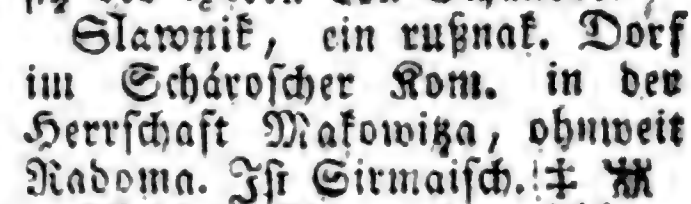 Slawnik, ein rußnak. Dorf
im Schároscher Kom. in der
Herrschaft Makowitza, ohnweit
Radoma. Ist Sirmaisch. ‡